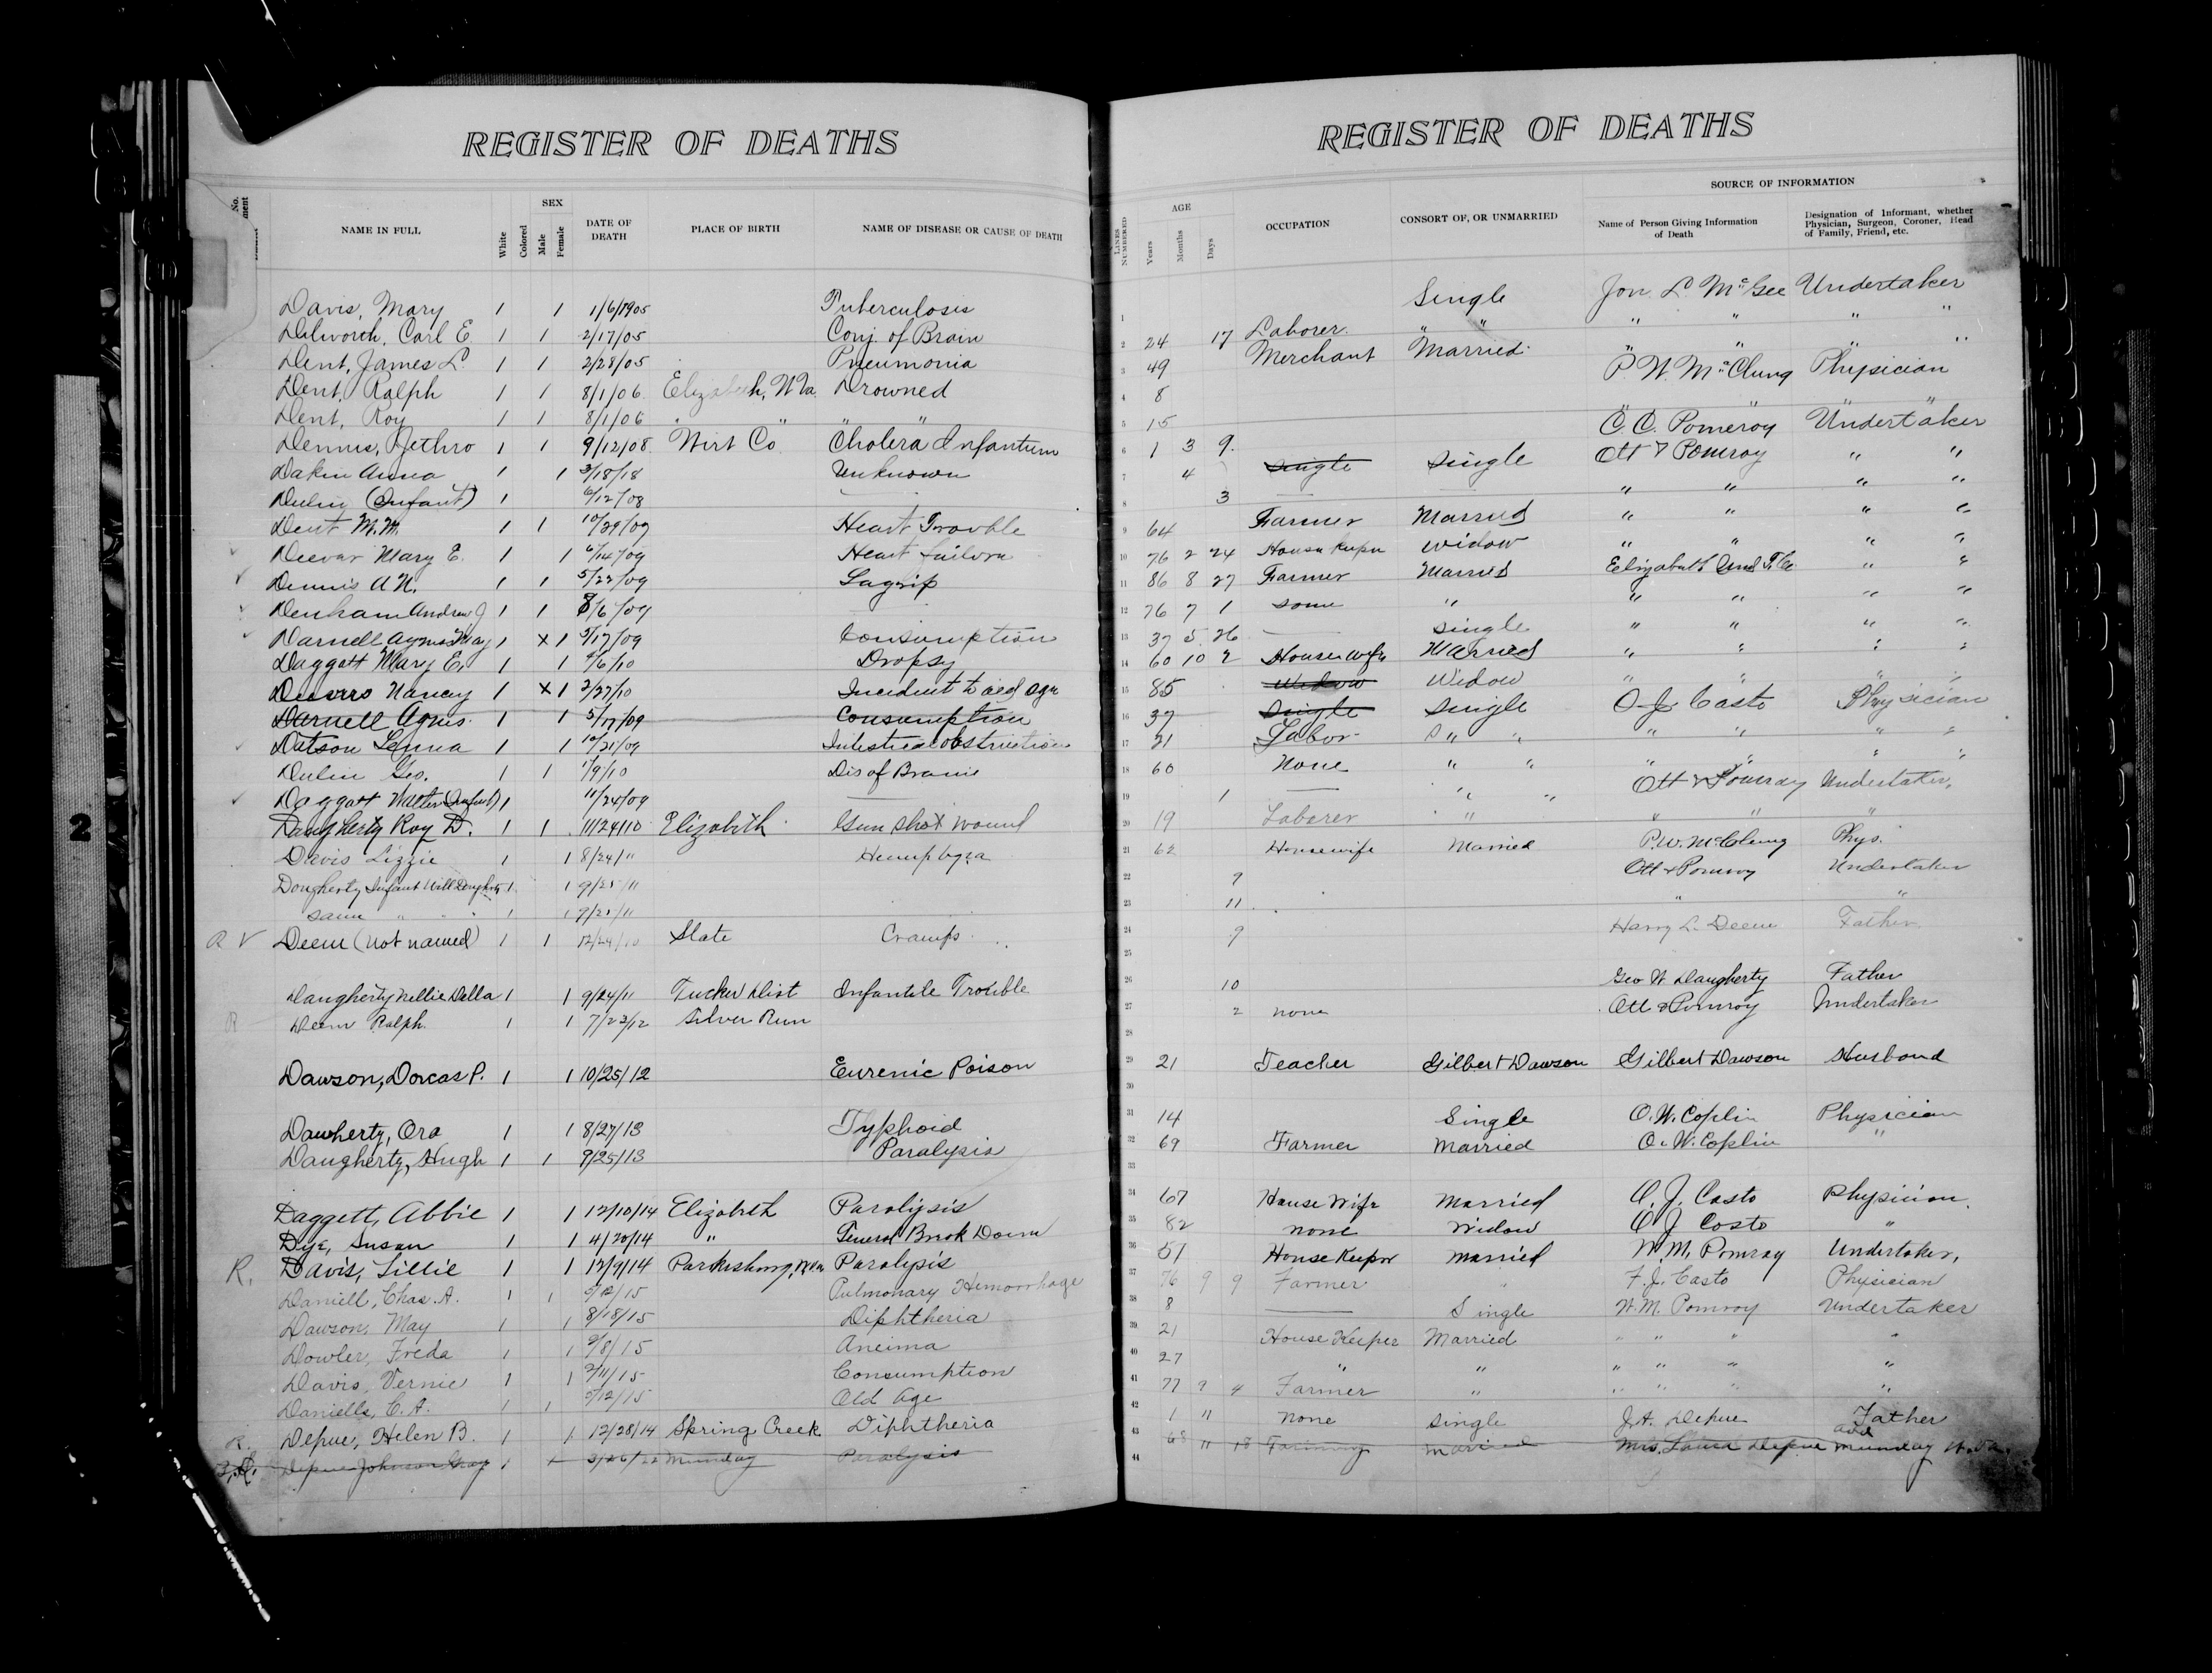 REGISTER OF DEATHS
No.
NAME IN FULL White Colored SEX Male Female DATE OF DEATH PLACE OF BIRTH NAME OF DISEASE OR CAUSE OF DEATH
Davis, Mary 1 1 1/6/1905 Tuberculosis
Dilworth, Carl E. 1 1 2/17/05 Conj. of Brain
Dent, James L. 1 1 2/28/05 Pneumonia
Dent, Ralph 1 1 8/1/06 Elizabeth, W Va. Drowned
Dent, Roy 1 1 8/1/06 " " " "
Dennis, Jethro 1 1 9/12/08 Wirt Co Cholera Infantum
Dakin Anna 1 1 3/18/18 Unknown
Dulin (Infant) 1 6/12/08
Dent M.M. 1 1 10/29/09 Heart Trouble
Deevar Mary E. 1 1 6/14/09 Heart failure
Dennis A N. 1 1 5/22/09 Lagrip
Denham Andrew J 1 1 8/6/09
Darnell Agnes May 1 X 1 5/17/09 Consumption
Daggett Mary E. 1 1 4/6/10 Dropsy
Nancy 1 X 1 2/27/10 Incident to old age
Darnell Agnes. 1 1 5/17/09 Consumption
Datson Lenna 1 1 10/21/09 Intestineal obstruction
Dulin Geo. 1 1 1/9/10 Dis of Brain
Daggett Walter (Infant) 1 11/24/09
Daugherty Roy D. 1 1 11/24/10 Elizabeth Gun shot wound
Davis Lizzie 1 1 8/24/11 Hemiplegia
Dougherty Infant Will Dougherty 1 1 9/25/11
same " " " 1 1 9/21/11
R V Deem (not named) 1 1 12/24/10 State Cramps
Daugherty Nellie Della 1 1 9/24/11 Tucker Dist Infantile Trouble
R Deem Ralph. 1 1 7/23/12 Silver Run
Dawson, Dorcas P. 1 1 10/25/12 Eurenic Poison
Dawherty, Ora 1 1 8/27/13 Typhoid
Daugherty, Hugh 1 1 9/25/13 Paralysis
Daggett, Abbie 1 1 12/10/14 Elizabeth Paralysis
Dye, Susan 1 1 4/20/14 " General Brook Down
R. Davis, Lillie 1 1 12/9/14 Parkersburg, W Va Paralysis
Daniell, Chas. A. 1 1 5/12/15 Pulmonary Hemorrhage
Dawson, May 1 1 8/18/15 Diphtheria
Dowler, Freda 1 1 9/8/15 Aneima
Davis, Vernie 1 1 2/11/15 Consumption
Daniells, C. A. 1 1 5/12/15 Old Age
R. Depue, Helen B. 1 1 12/28/14 Spring Creek Diphtheria
Depue Johnson Gray 1 3/26/22 Munday Paralysis
REGISTER OF DEATHS
LINES NUMBERED AGE Years Months Days OCCUPATION CONSORT OF, OR UNMARRIED SOURCE OF INFORMATION
Name of Person Giving Information of Death
Designation of Informant, whether Physician, Surgeon, Coroner, Head of Family, Friend, etc.
1 Single Jon. L. McGee Undertaker
2 24 17 Laborer. " " " " " "
3 49 Merchant Married " " " "
4 8 P. W. McClung Physician
5 15 " " " "
6 1 3 9. C. C. Pomeroy Undertaker
7 4 single Single Ott & Pomroy " "
8 3 " " " "
9 64 Farmer Married " " " "
10 76 2 24 House keeper widow " " " "
11 86 8 27 Farmer Married Elizabeth Und. F. Co " "
12 76 7 1 same " " " " "
13 37 5 26 Single " " " "
14 60 10 2 Housewife Married " " " "
15 85 Widow Widow " " " "
16 37 Single Single O J Casto Physician
17 21 Labor " " " " " "
18 60 None " " " " " "
19 1 " " Ott & Pomroy Undertaker,
20 19 Laborer " " " "
21 62 Housewife Married P.W. McClung Phys.
22 9 Ott & Pomroy Undertaker
23 11 " "
24 9 Harry L. Deem Father
25
26 10 Geo W Daugherty Father
27 2 none Ott & Pomroy Undertaker
28
29 21 Teacher Gilbert Dawson Gilbert Dawson Husband
30
31 14 Single O. W. Coplin Physician
32 69 Farmer Married O. W. Coplin "
33
34 67 House Wife Married O. J. Casto Physician.
35 82 none Widow O J Costo "
36 51 House Keeper Married W. M. Pomroy Undertaker,
37 76 9 9 Farmer " F. J. Casto Physician
38 8 Single W. M. Pomroy Undertaker
39 21 House Keeper Married " " " "
40 27 " " " " " "
41 77 9 4 Farmer " " " " "
42 1 11 none Single J. A. Depue Father
43 68 11 18 Farming Married Mrs. Laura Depue add Munday W. Va.
44
2